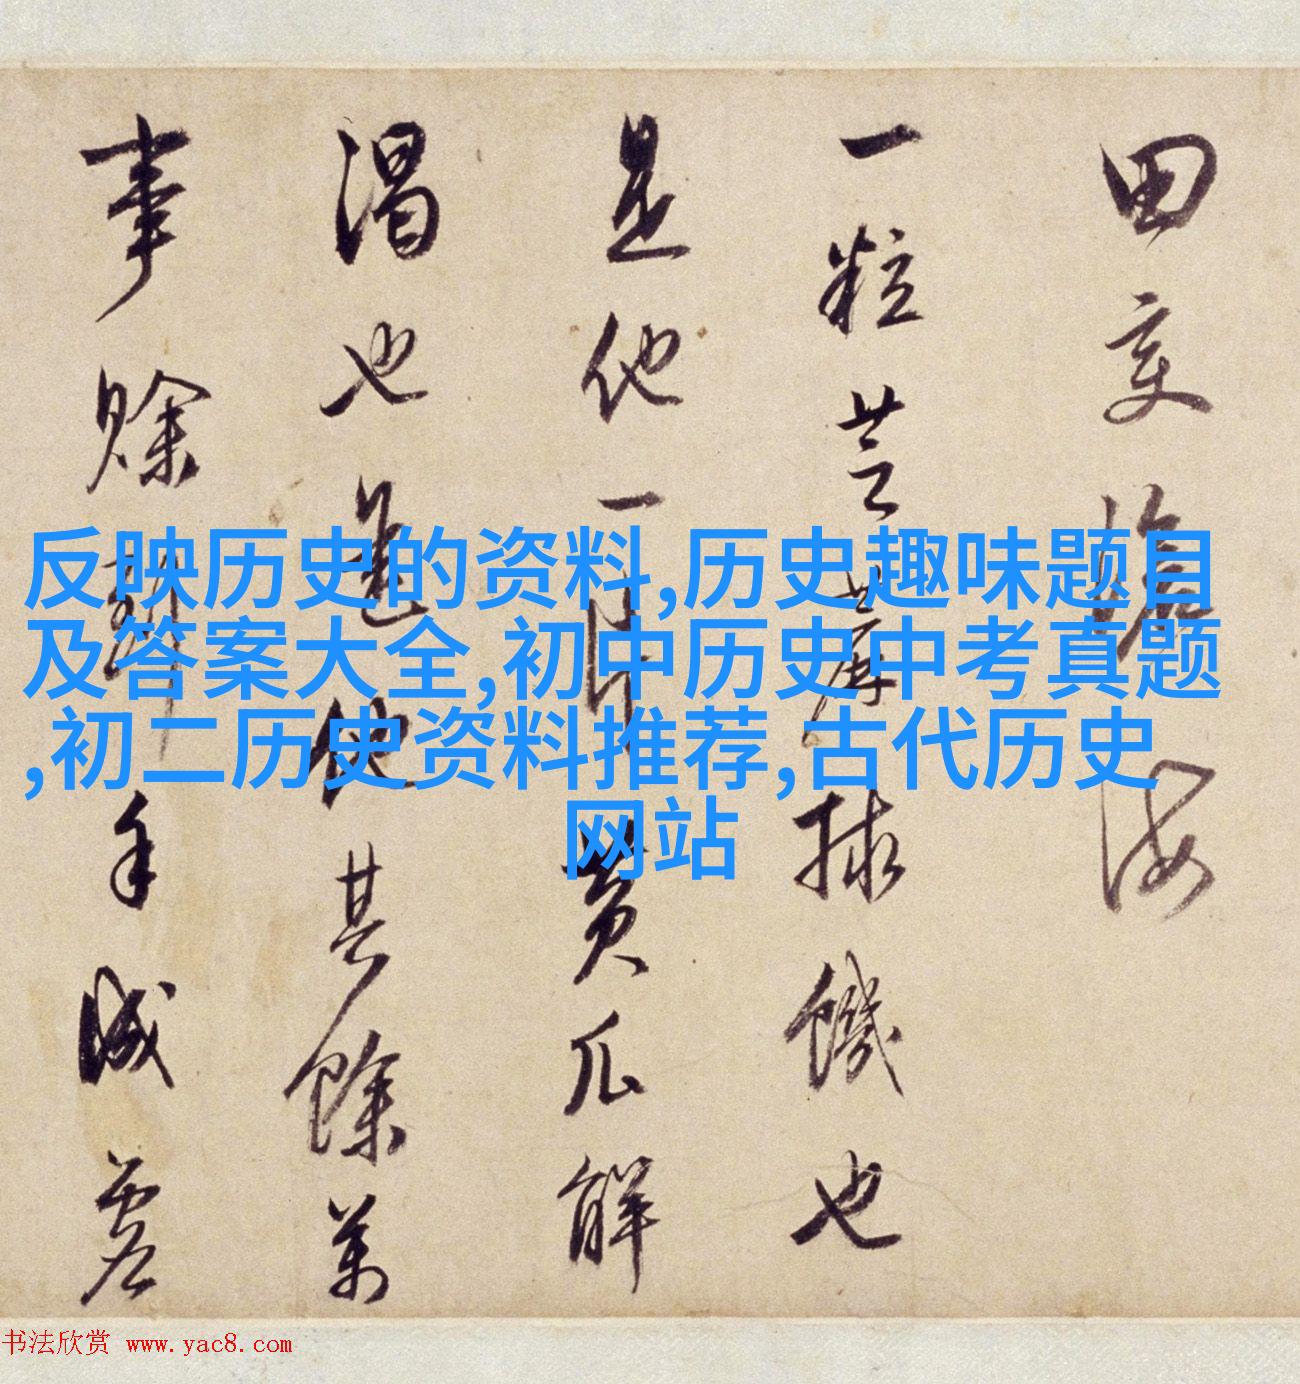 田变海
一粒芝蔴捄饑也
是他一黄瓜解
渴也他其餘萬
事賒手
反映历史的资料,历史趣味题目
及答案大全,初中历史中考真题
,初二历史资料推荐,古代历史
网站
书法欣赏 www.yac8.com